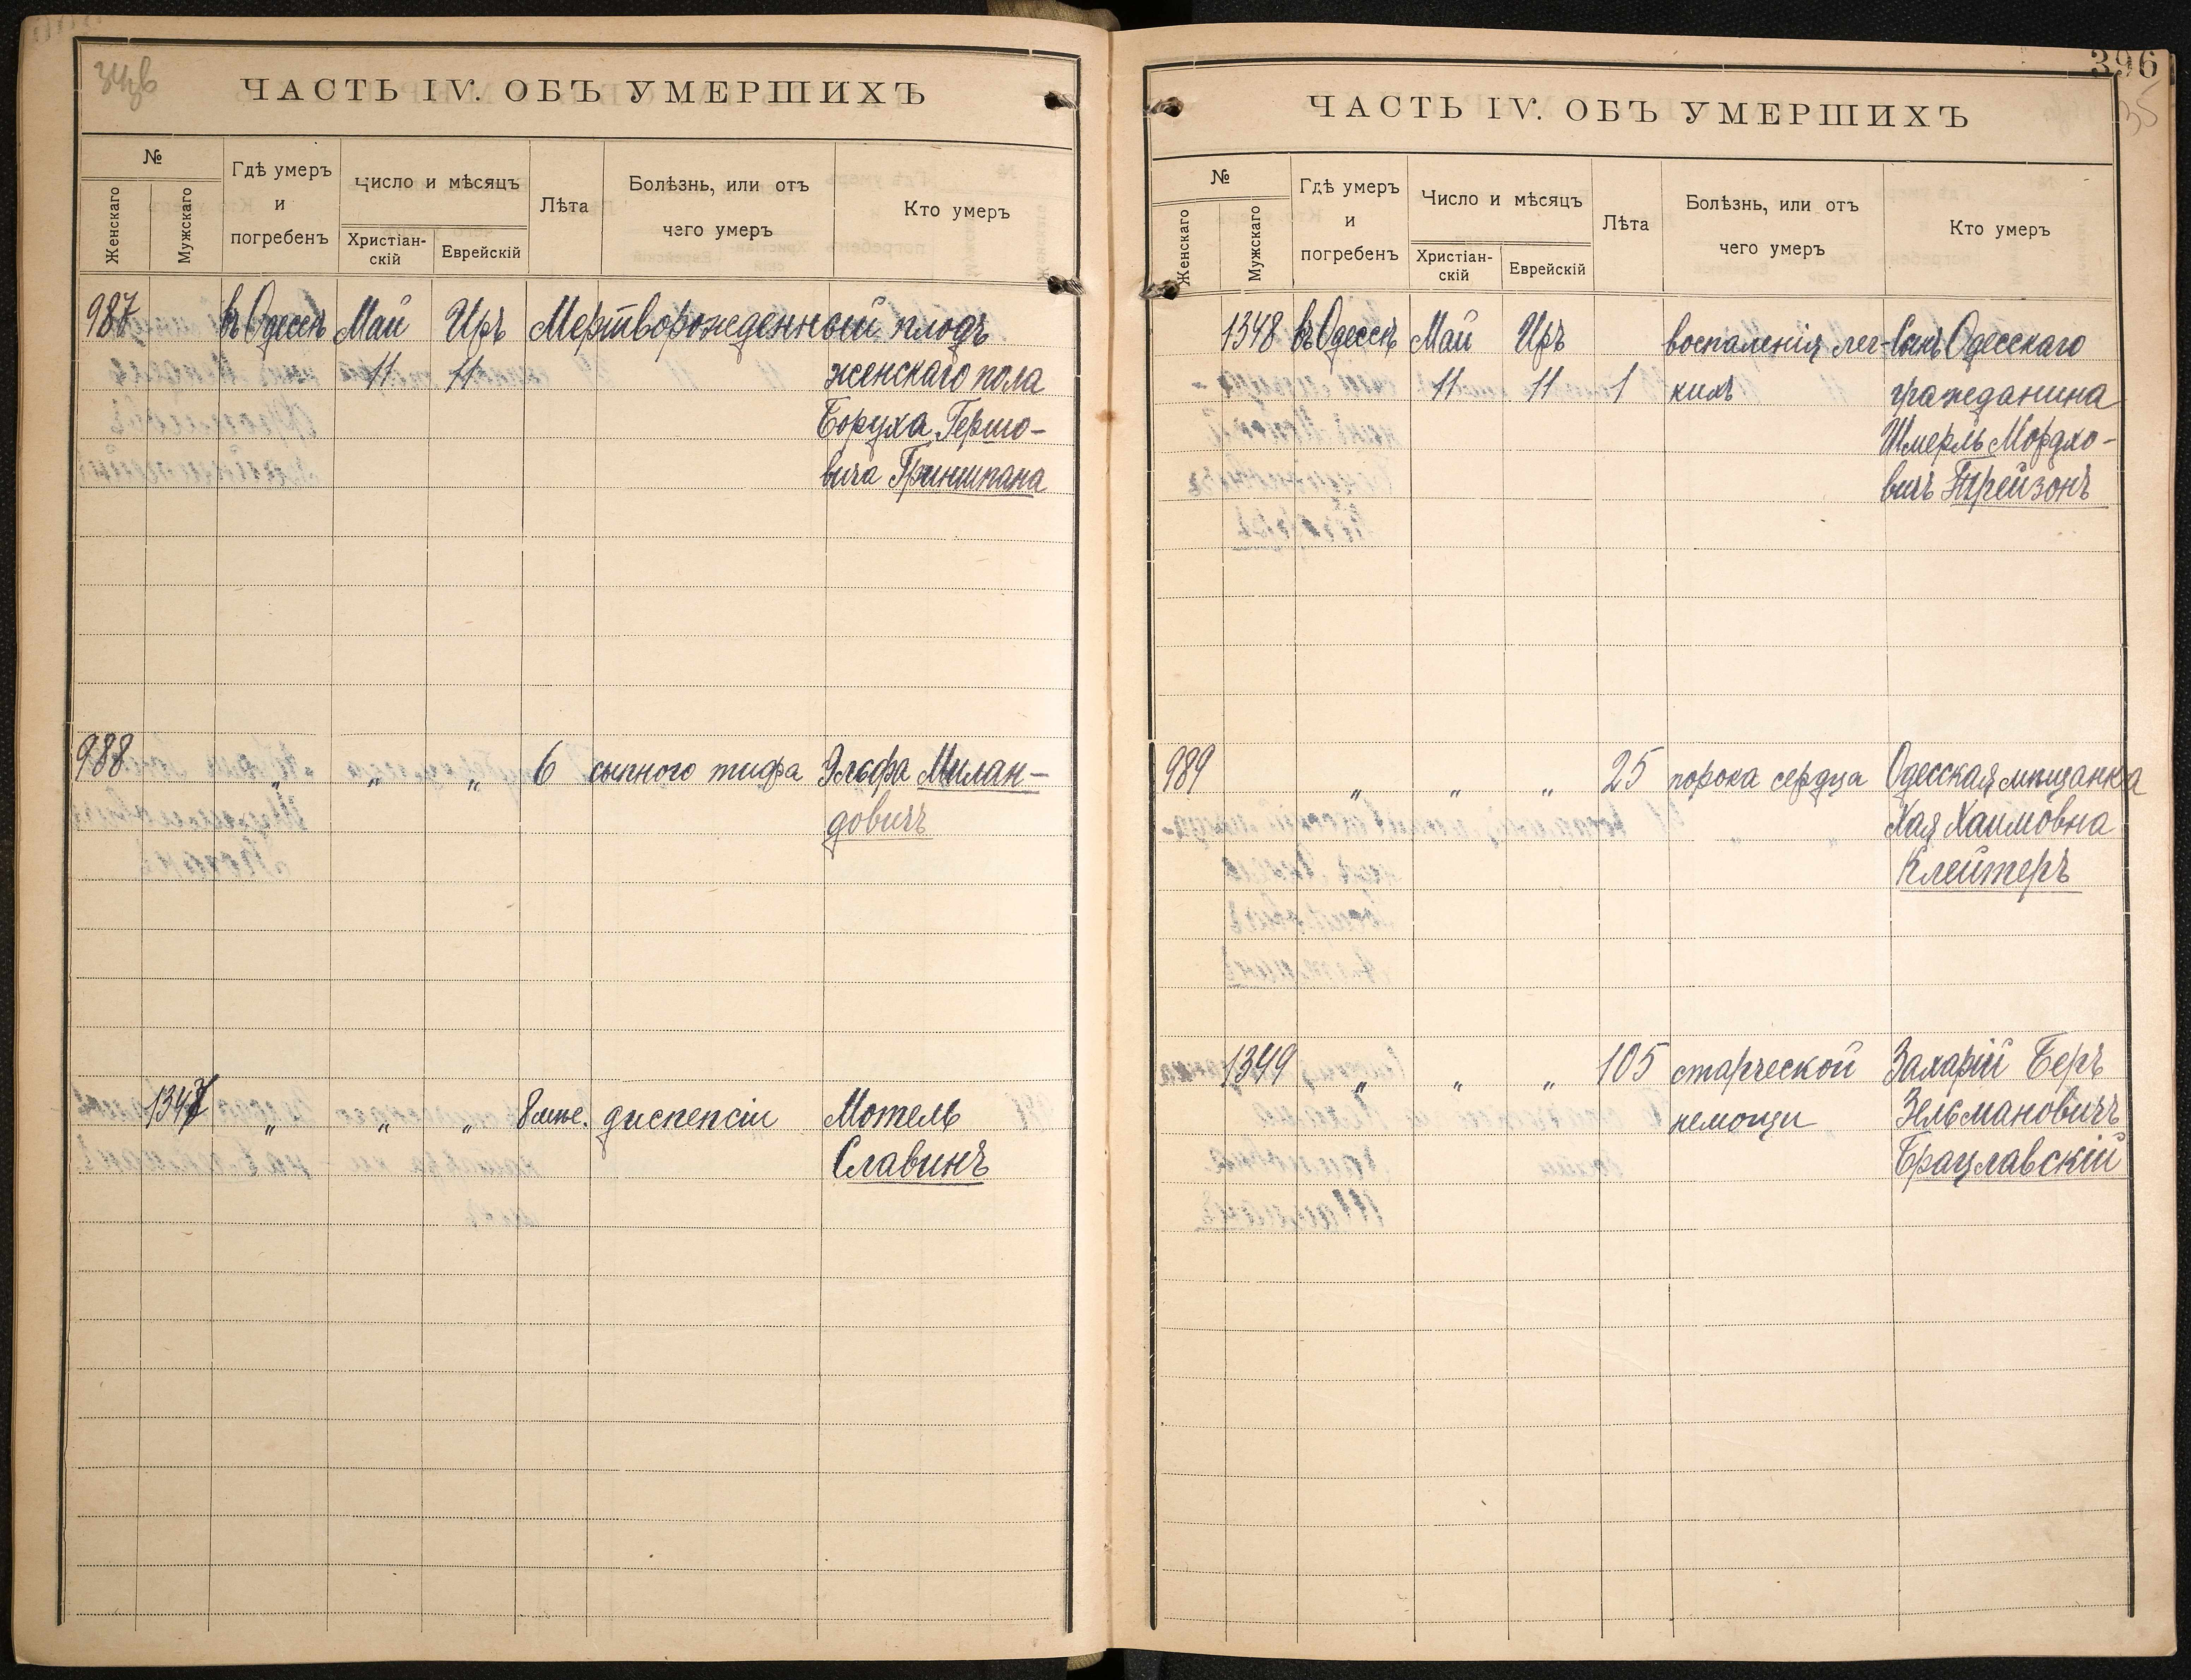 ЧАСТЬ IV. ОБЪ УМЕРШИХЪ
№
Женскаго
Мужскаго
Гдѣ умеръ
и
погребенъ
Число и мѣсяцъ
Христіан-
скій
Еврейскій
Лѣта
Болѣзнь, или отъ
чего умеръ
Кто умеръ
987 въ Одессѣ Май Иръ Мертворожденный плодъ
11 11 женскаго пола
Боруха Гершо-
вича Гриншпана
988 " " " 6 сыпного тифа Эльфа Милан-
довичъ
1347 " " " 8 мѣс. диспепсіи Мотель
Славинъ
396
35
ЧАСТЬ IV. ОБЪ УМЕРШИХЪ
№
Женскаго
Мужскаго
Гдѣ умеръ
и
погребенъ
Число и мѣсяцъ
Христіан-
скій
Еврейскій
Лѣта
Болѣзнь, или отъ
чего умеръ
Кто умеръ
1348 въ Одессѣ Май Иръ воспаленія лег- Сынъ Одесскаго
11 11 1 кихъ гражданина
Шмерль Мордко-
вичъ Трейзонъ
989 " " " 25 порока сердца Одесская мѣщанка
Хая Хаимовна
Клейтеръ
1349 " " " 105 старческой Захарій Беръ
немощи Зельмановичъ
Брацлавскій